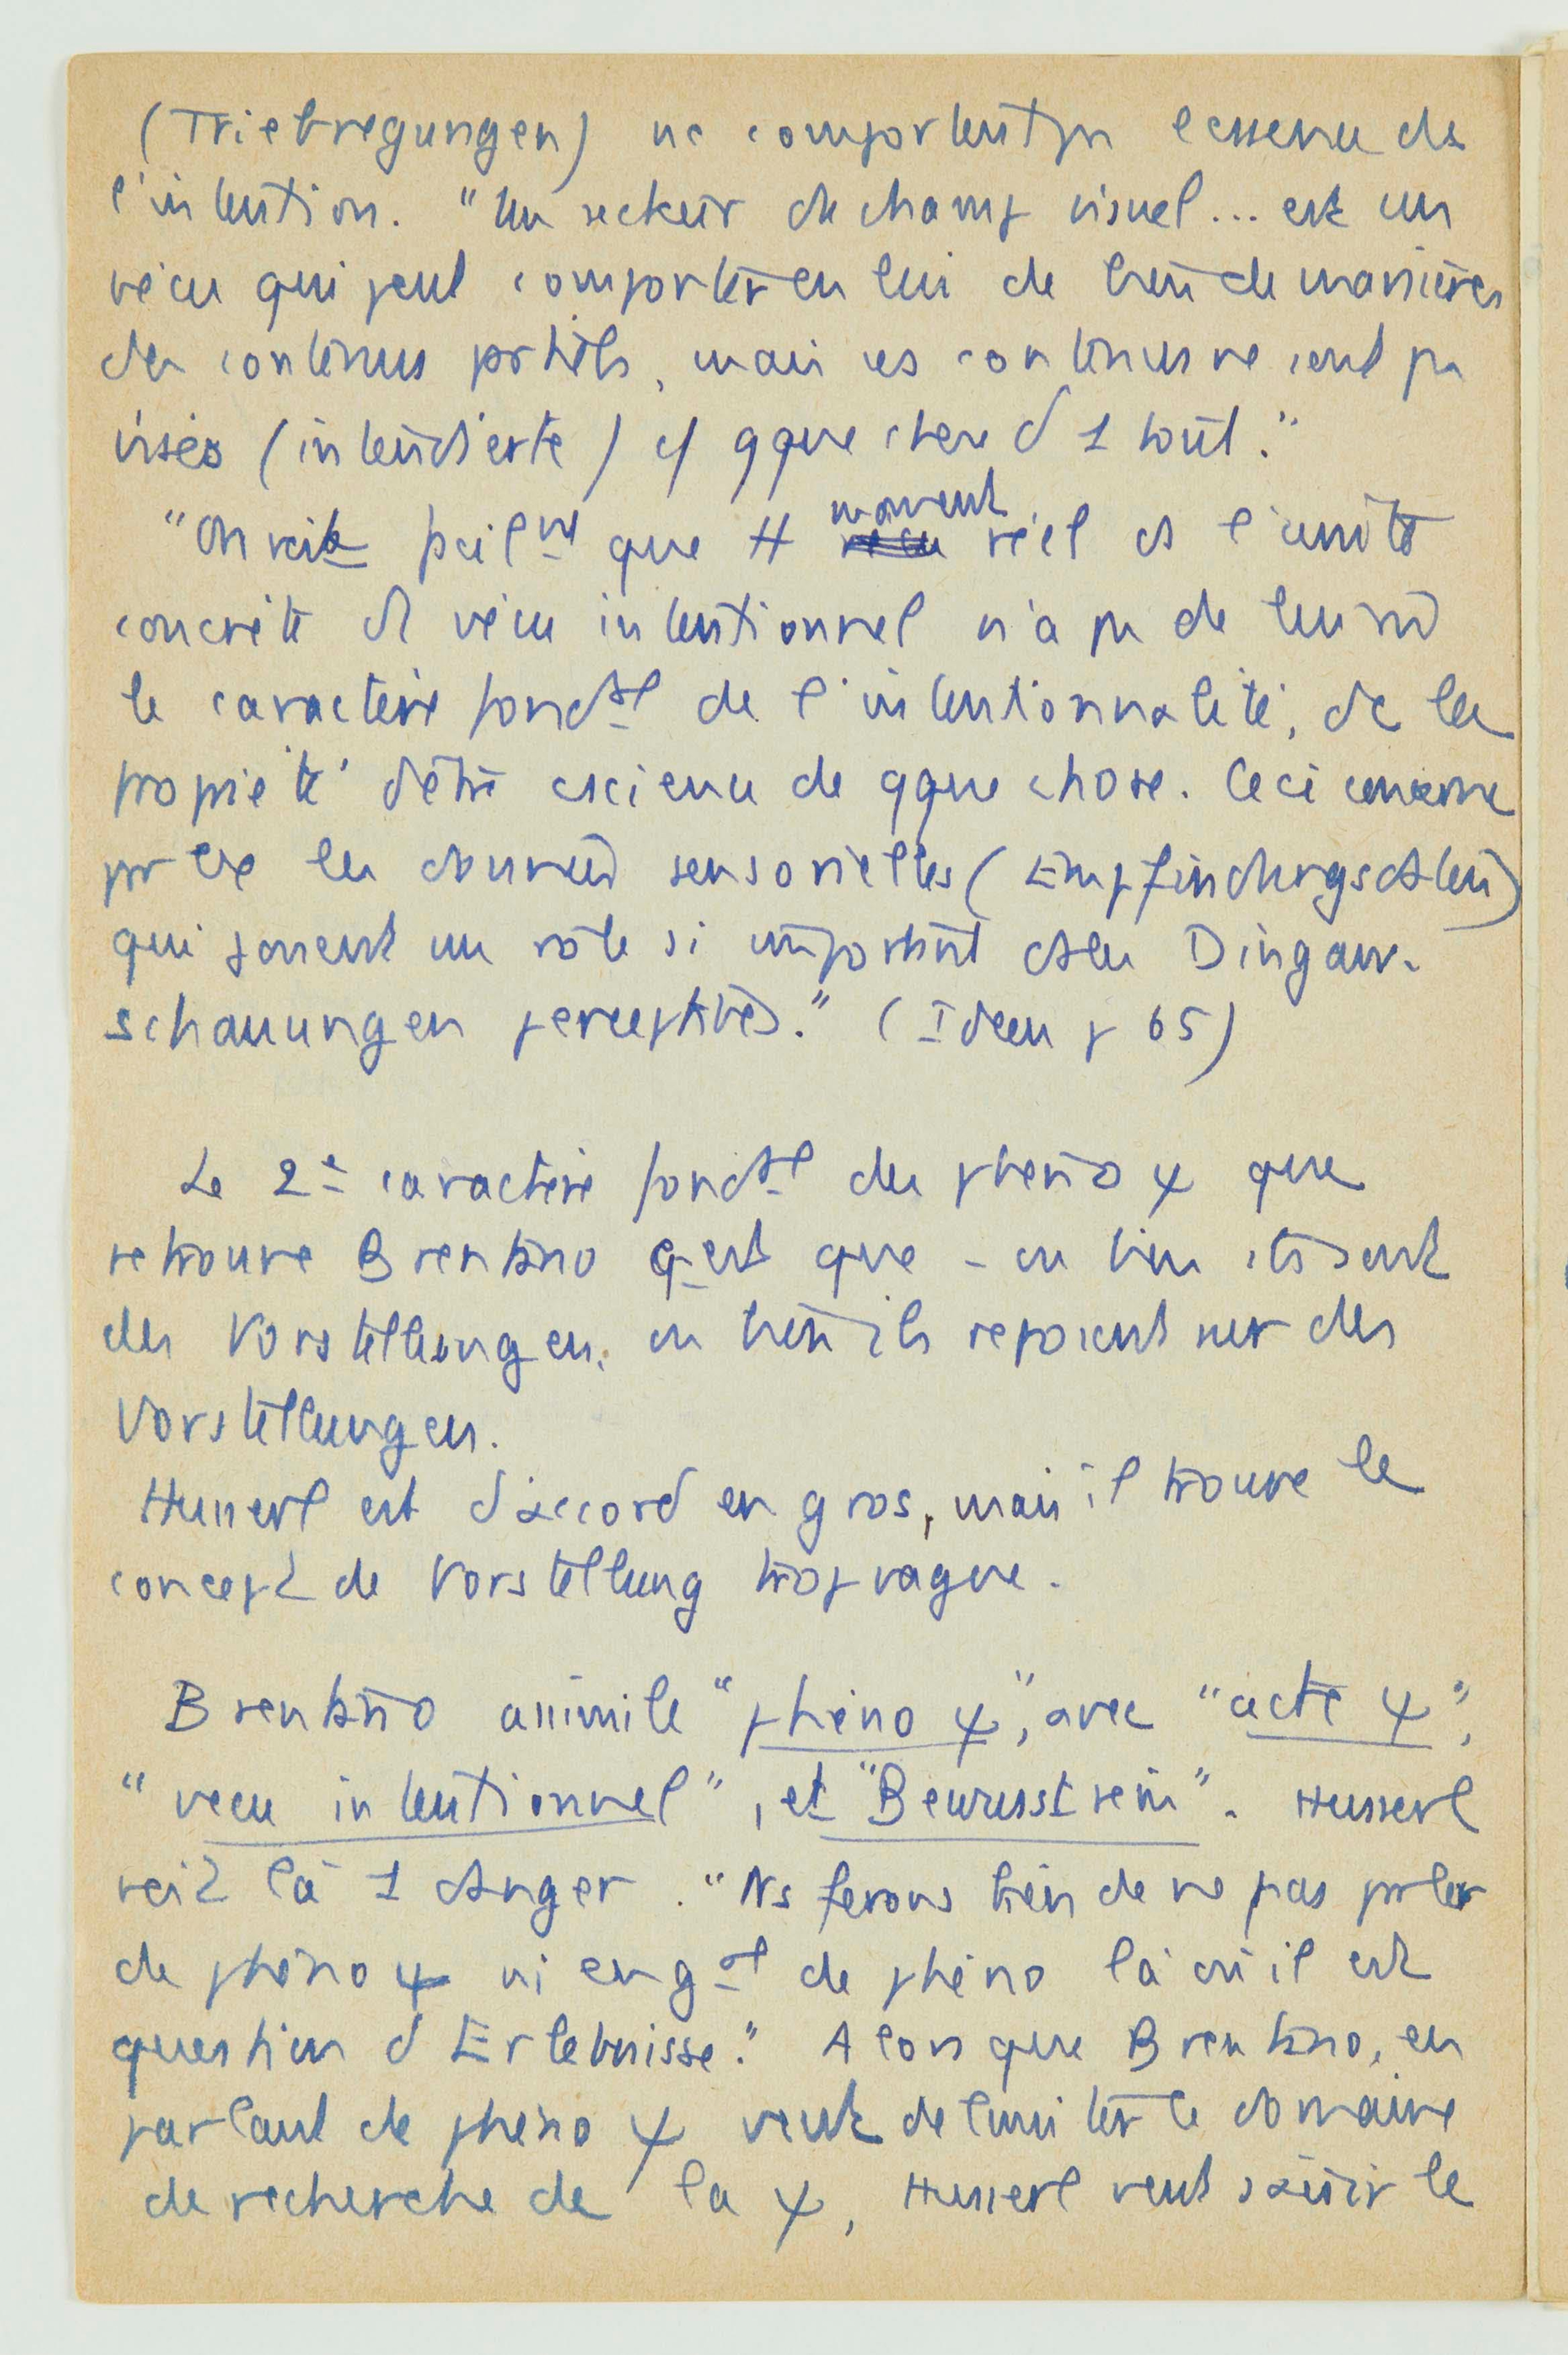 (Triebregungen) ne comportent pas l'essence de
l'intention. "Un secteur du champ visuel... est un
vécu qui peut comporter en lui de bien de manières
des contenus partiels, mais ces contenus ne sont pas
visés (intendierte) cf qque chose d 1 tout."
"On voit facilmt que tt moment réel ds l'unité
concrète d1 vécu intentionnel n'a pas de lui m̂
le caractère fondtal de l'intentionnalité, de la
propriété d'être cscience de qque chose. Ceci concerne
pr ex les données sensorielles (Empfindungsdaten)
qui jouent un rôle si important ds les Dingan-
schauungen perceptives." (Ideen p 65)
Le 2e caractère fondtal des phéno ψ que
retrouve Brentano c'est que - ou bien ils sont
des Vorstellungen, ou bien ils reposent sur des
Vorstellungen.
Husserl est d'accord en gros, mais il trouve le
concept de Vorstellung trop vague.
Brentano assimile "phéno ψ", avec "acte ψ",
"vécu intentionnel", et "Bewusstsein". Husserl
voit là 1 danger. "Ns ferons bien de ne pas parler
de phéno ψ ni en gal de phéno là où il est
question d Erlebnisse." Alors que Brentano, en
parlant de phéno ψ veut délimiter le domaine
de recherche de la ψ, Husserl veut saisir le